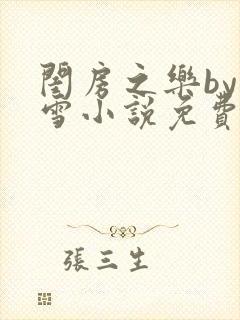 閨房之樂by
雪小說免費
張三生